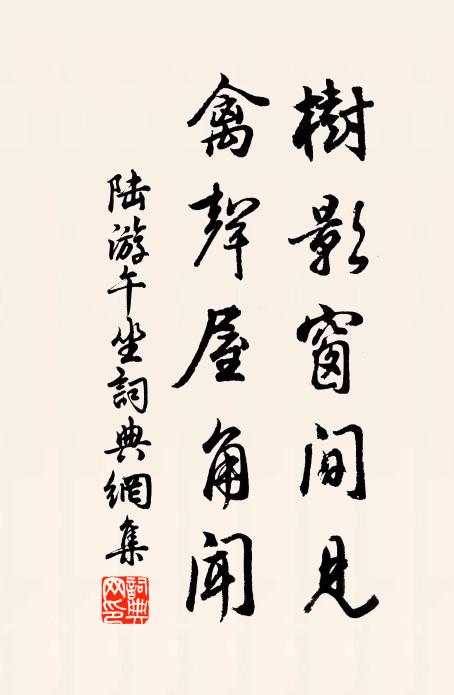 樹影窗間見
禽聲屋角聞
陆游午坐詞典網集
詞典网印